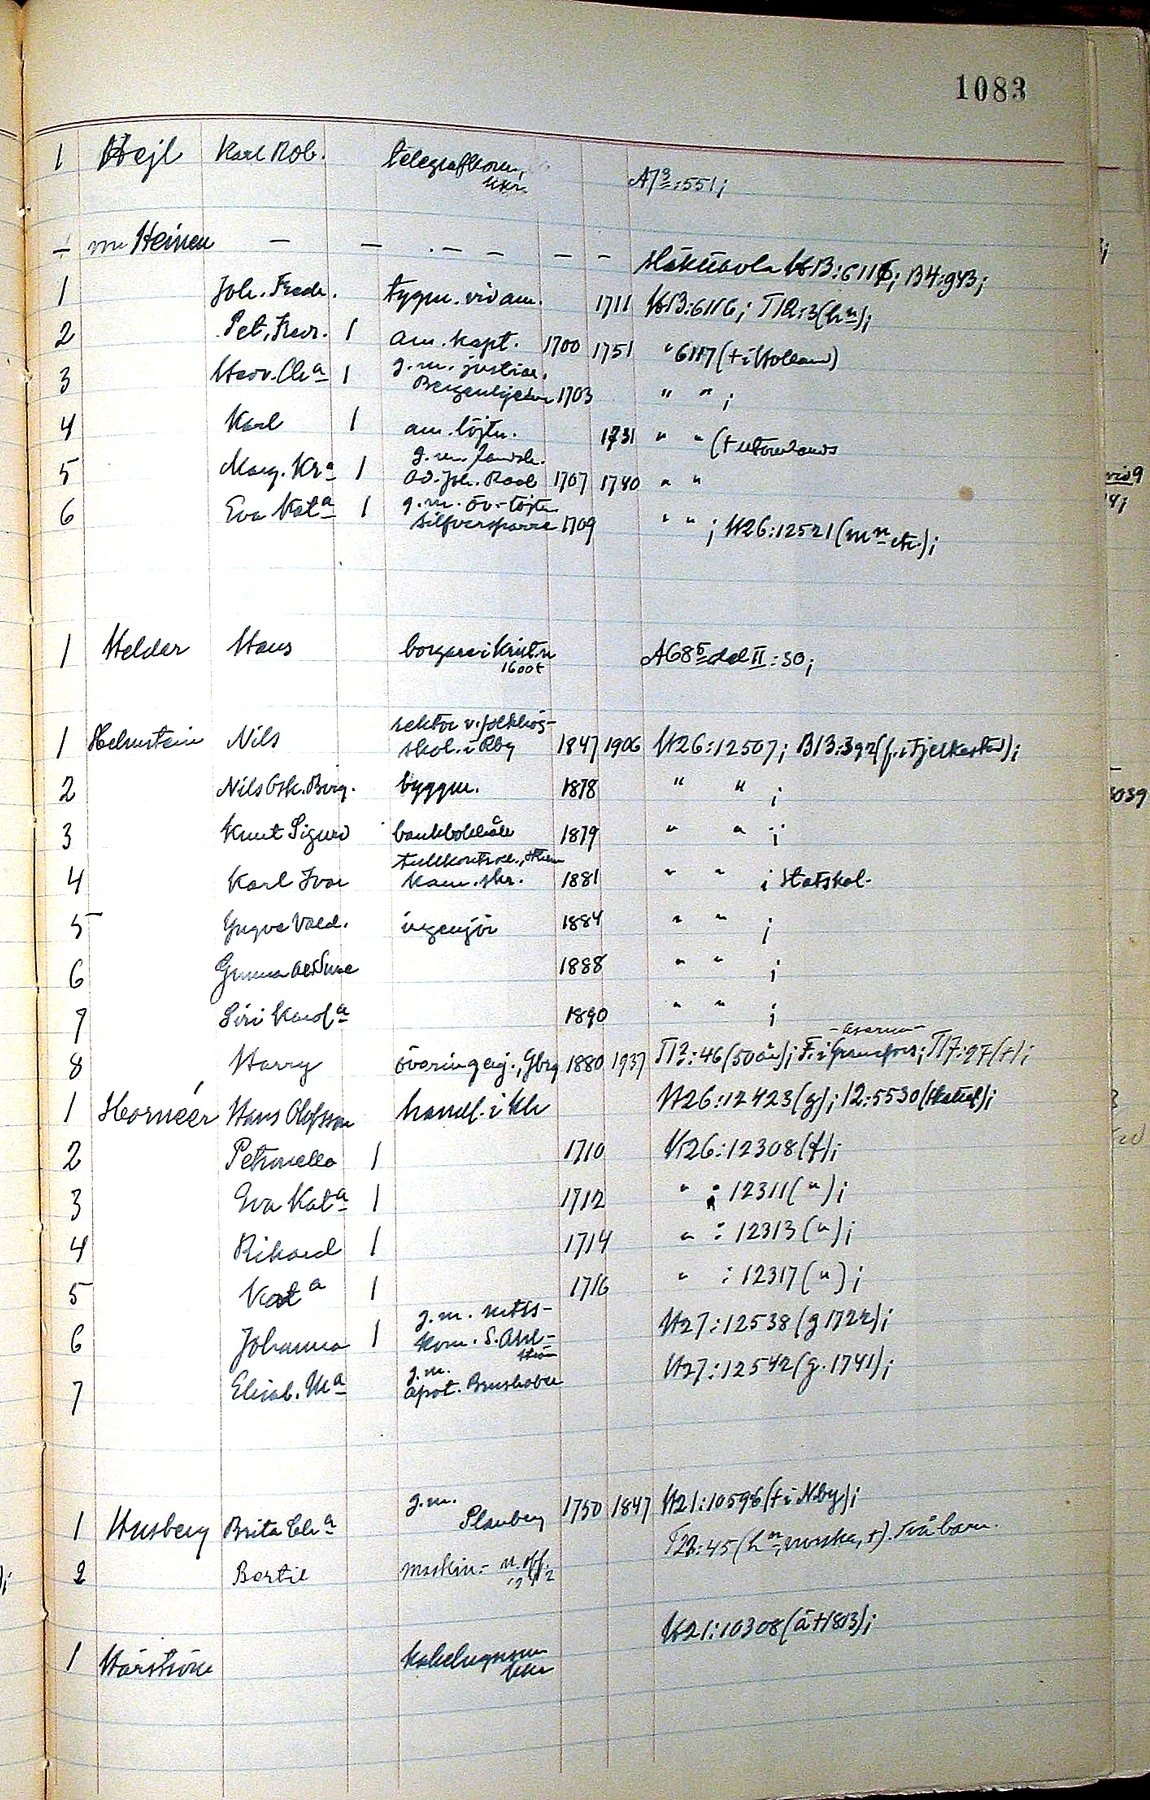 1083
1 Hejl Karl Rob. telegrafkom, A73:551;
÷ von Heinen — — — — — — — Släkttavla H13:6116; B4:943;
1 Joh. Fredr. tygm. vid am. 1711 H13:6116; T12:3(hn);
2 Pet. Fredr. 1 am. kapt. 1700 1751 " 6117(† i Holland)
3 Hedv. Cha 1 g.m. justiae. Bergenhjelm 1703 " " ;
4 Karl 1 am. löjtn. 1731 " " († utomlands
5 Marg. Kra 1 g.m. landsh. Ad. Joh. Raab 1707 1740 " "
6 Eva Kata 1 g.m. öv-löjtn Silfversparre 1709 " " ; H26:12521(mn etc.);
1 Helder Hans borgare i Krist.n 1600t A685 del II:30;
1 Helmstein Nils rektor v. folkhög-
skol. i Rby 1847 1906 H26:12507; B13:392(f. i Fjelkestad);
2 Nils Osk. Birg. byggm. 1878 " " ;
3 Knut Sigurd bankbokhåll 1879 " " ;
4 Karl Ivar tullkontroll., kam. skr. 1881 " " ; Statskal.
5 Yngve Vald. ingenjör 1884 " " ;
6 1888 " " ;
7 Siri Karola 1890 " " ;
8 Harry överingenj., Gbrg 1880 1937 T13:46(50 år); F. i T17:27(†);
1 Hornéer Hans Olofsson handl. i Khr H26:12423(g); 12:5530
2 Petronella 1 1710 H26:12308(f);
3 Eva Kata 1 1712 " : 12311(");
4 Rikard 1 1714 " : 12313(");
5 Kata 1 1716 " : 12317(");
6 Johanna 1 g.m. kom. S. Ahl-
ström H27:12538(g 1722);
7 Elisab. Ma g.m. apot. H27:12542(g. 1741);
1 Husberg Brita Cha g.m. Planberg 1750 1847 H21:10596(† i Nby);
2 Bertil maskin- u.off. T22:45(hn, norska, †). Två barn.
1 Hårström H21:10308(å †1813);